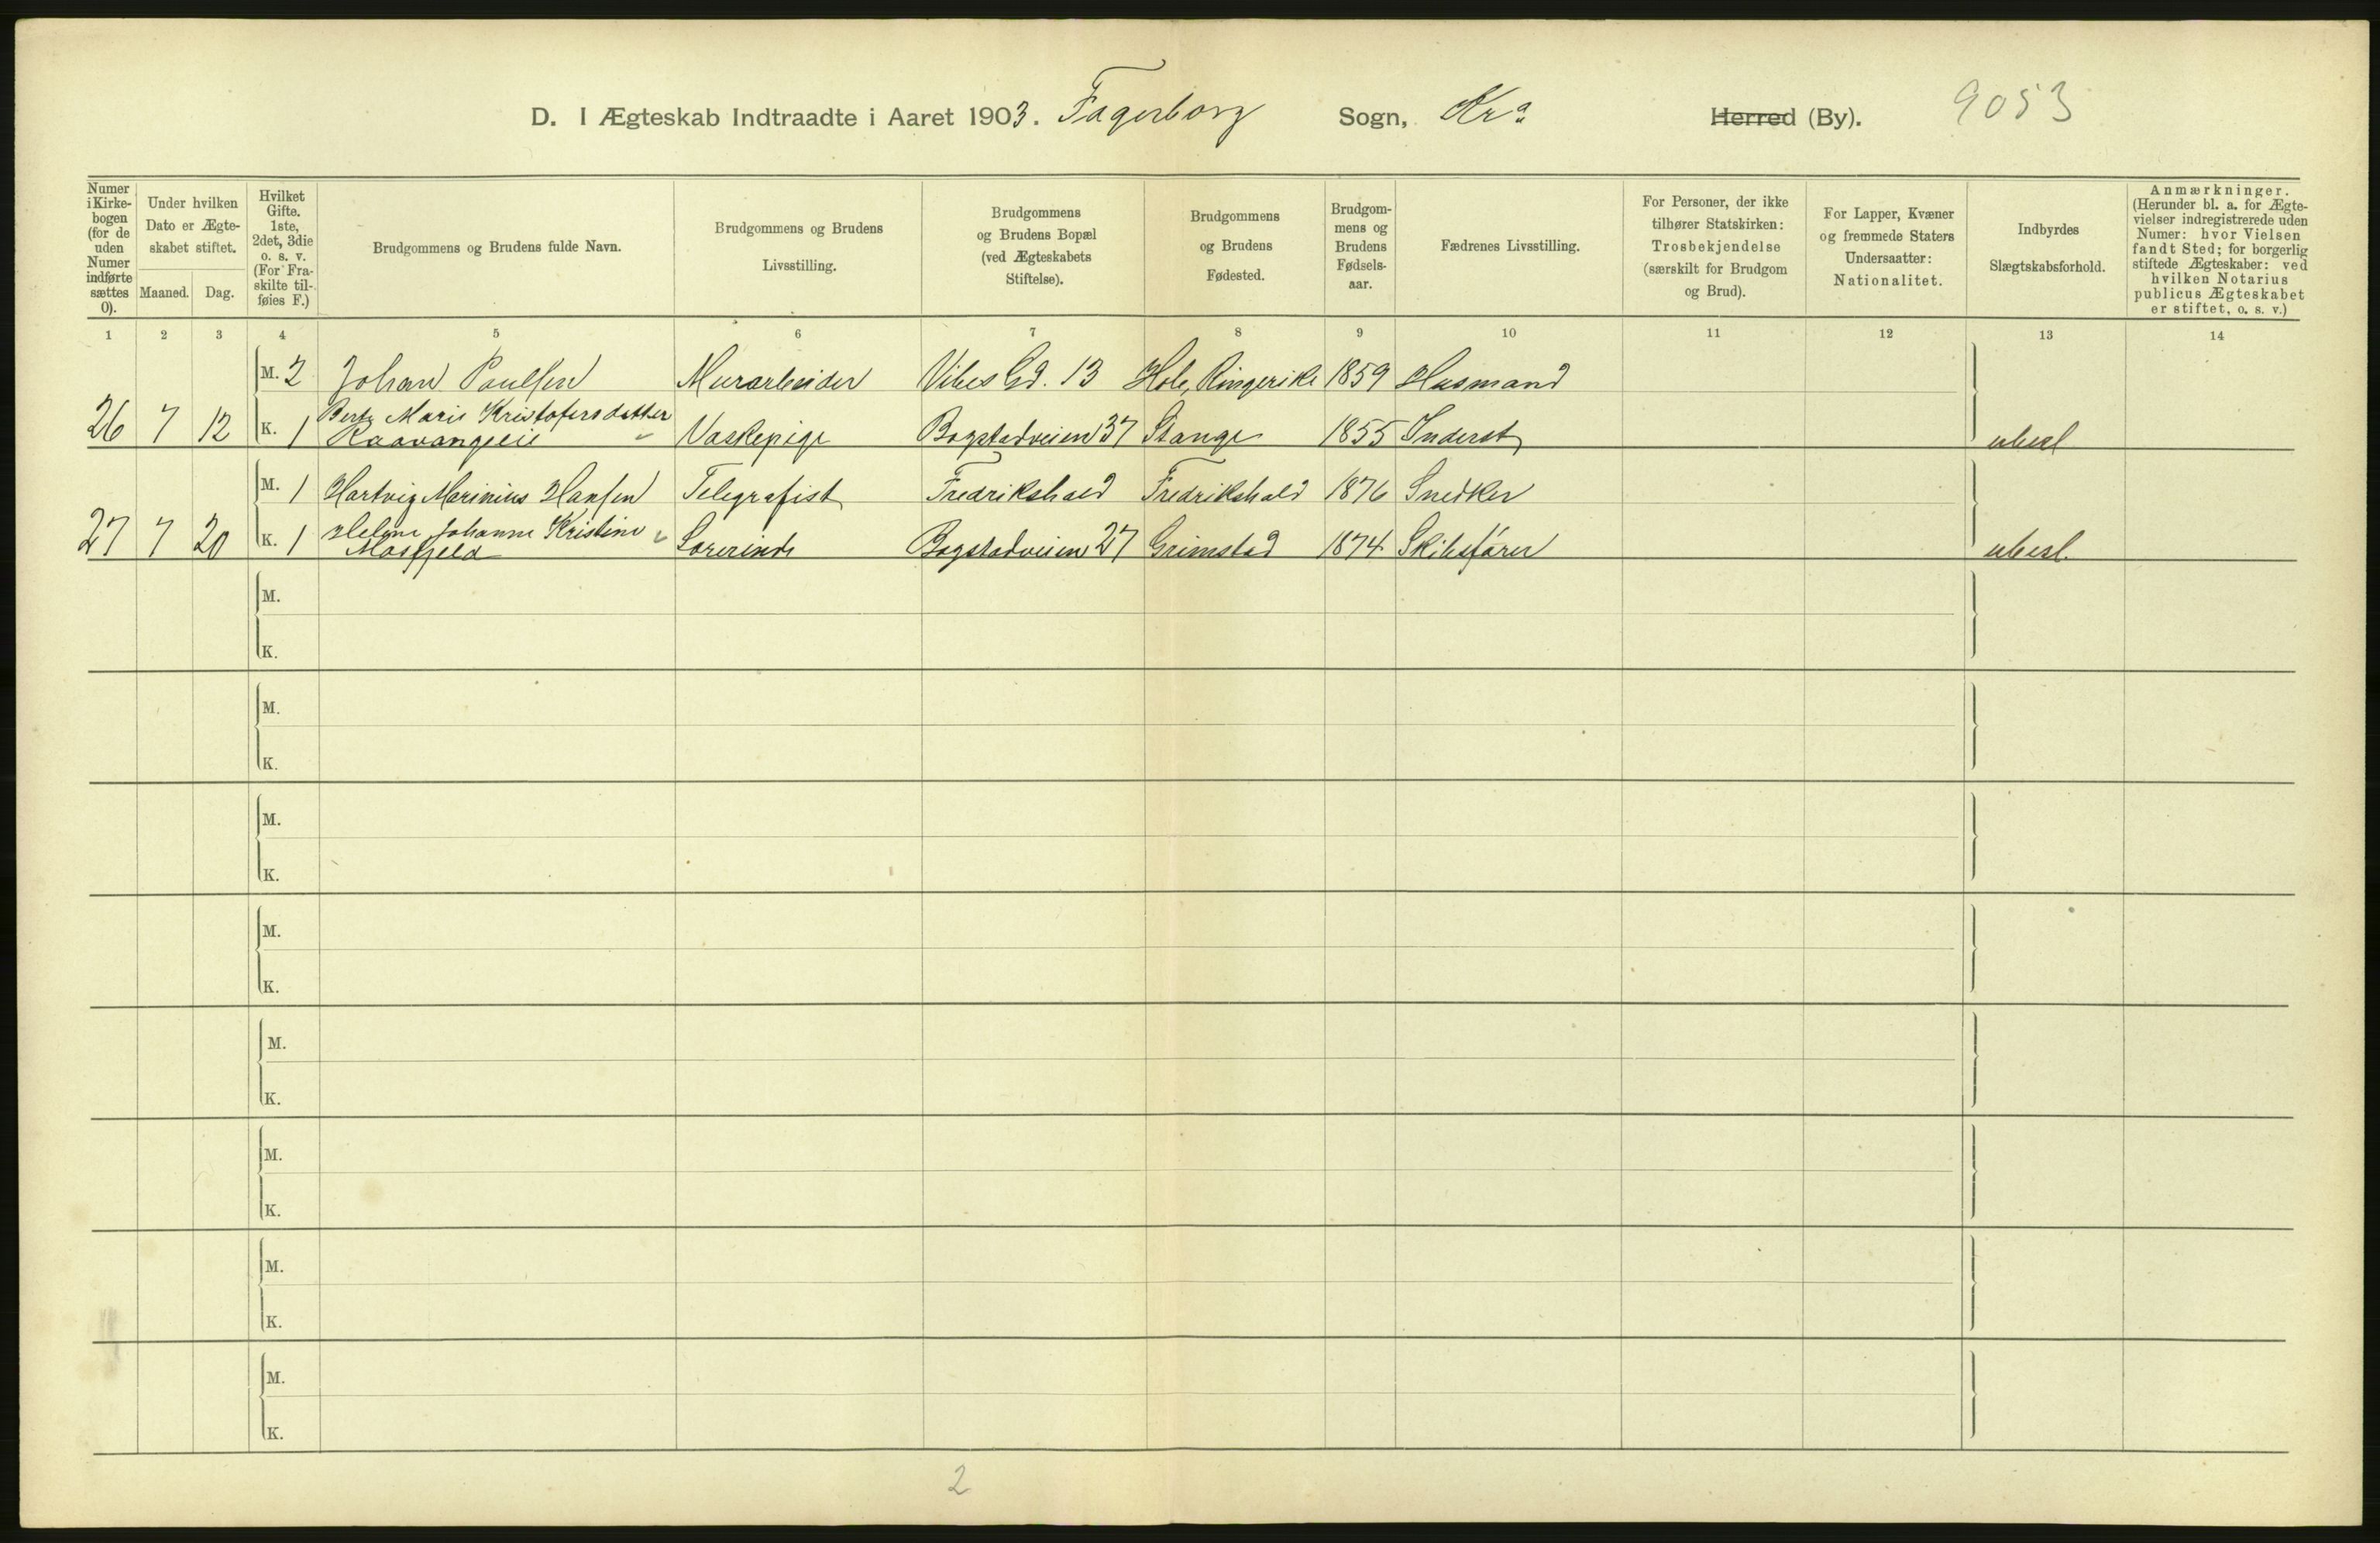 D. I Ægteskab Indtraadte i Aaret 1903. Fagerborg Sogn, Kra Herred (By). 9053
Numer i Kirkebogen (for de uden Numer indførte sættes 0).
Under hvilken Dato er Ægteskabet stiftet.
Maaned. Dag.
Hvilket Gifte. 1ste, 2det, 3die o. s. v. (For Fraskilte tilføies F.)
Brudgommens og Brudens fulde Navn.
Brudgommens og Brudens Livsstilling.
Brudgommens og Brudens Bopæl (ved Ægteskabets Stiftelse).
Brudgommens og Brudens Fødested.
Brudgommens og Brudens Fødselsaar.
Fædrenes Livsstilling.
For Personer, der ikke tilhører Statskirken: Trosbekjendelse (særskilt for Brudgom og Brud).
For Lapper, Kvæner og fremmede Staters Undersaatter: Nationalitet.
Indbyrdes Slægtskabsforhold.
Anmærkninger. (Herunder bl. a. for Ægtevielser indregistrerede uden Numer: hvor Vielsen fandt Sted; for borgerlig stiftede Ægteskaber: ved hvilken Notarius publicus Ægteskabet er stiftet, o. s. v.)
1 2 3 4 5 6 7 8 9 10 11 12 13 14
M. 2 Johan Paulsen Murarbeider Vibes Gd. 13 Hole, Ringerike 1859 Husmand
26 7 12 K. 1 Marie Kristofersdatter Vaskepige Bogstadveien 37 Stange 1855 Inderst ubesl
M. 1 Hartvig Marinius Hansen Telegrafist Fredrikshald Fredrikshald 1876 Snedker
27 7 20 K. 1 Helene Johanne Kristine Mosfjeld Lærerinde Bogstadveien 27 Grimstad 1874 Skibsfører ubesl.
M.
K.
M.
K.
M.
K.
M.
K.
M.
K.
M.
K.
M.
K.
M.
K.
2